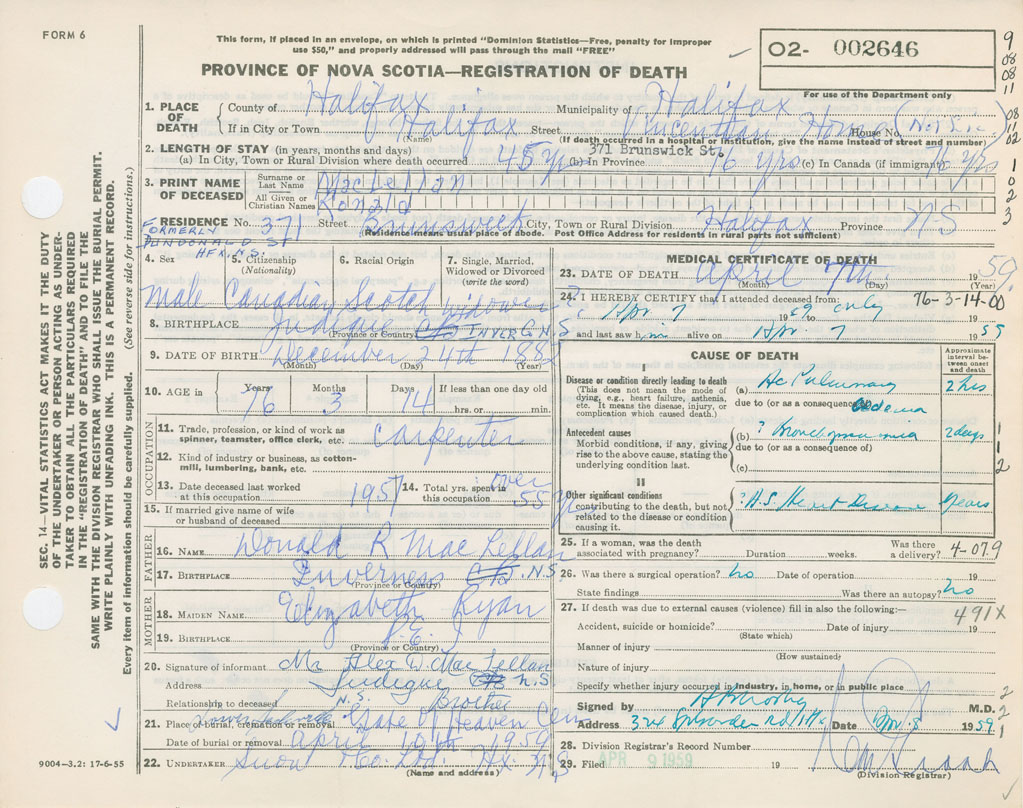 FORM 6
This form, if placed in an envelope, on which is printed "Dominion Statistics—Free, penalty for improper
use $50," and properly addressed will pass through the mail "FREE"
02- 002646
For use of the Department only
PROVINCE OF NOVA SCOTIA—REGISTRATION OF DEATH
9
08
08
11
08
11
02
1
0
2
3
3
1. PLACE OF DEATH
County of Halifax Municipality of Halifax
If in City or Town Halifax Street Vincentian Home House No.
(Name) (If death occurred in a hospital or institution, give the name instead of street and number)
371 Brunswick St.
2. LENGTH OF STAY (in years, months and days)
(a) In City, Town or Rural Division where death occurred 45 yrs (b) In Province 76 yrs (c) In Canada (if immigrant) 76 yrs
3. PRINT NAME OF DECEASED
Surname or Last Name MacLellan
All Given or Christian Names Ronald
RESIDENCE No. 371 Street Brunswick City, Town or Rural Division Halifax Province N-S
Residence means usual place of abode. Post Office Address for residents in rural parts not sufficient)
FORMERLY
DUNDONALD ST
HFX. N.S.
4. Sex 5. Citizenship (Nationality) 6. Racial Origin 7. Single, Married, Widowed or Divorced (write the word)
Male Canadian Scotch Widower
8. BIRTHPLACE Judique INVER Co N.S
(Province or Country)
9. DATE OF BIRTH December 24th 1882
(Month) (Day) (Year)
10. AGE in Years 76 Months 3 Days 14 If less than one day old
hrs. or min.
OCCUPATION
11. Trade, profession, or kind of work as spinner, teamster, office clerk, etc. Carpenter
12. Kind of industry or business, as cotton-mill, lumbering, bank, etc.
13. Date deceased last worked at this occupation 1957 14. Total yrs. spent in this occupation over 55 yrs
15. If married give name of wife or husband of deceased
FATHER
16. NAME Donald R MacLellan
17. BIRTHPLACE Inverness N.S
(Province or Country)
MOTHER
18. MAIDEN NAME Elizabeth Ryan
19. BIRTHPLACE
(Province or Country)
20. Signature of informant Mr Alex D. MacLellan
Address Judique N.S
N.S.
Relationship to deceased Brother
21. Place of burial, cremation or removal Gate of Heaven Cem
Date of burial or removal April 10th 1959
22. UNDERTAKER Snow & Co. Ltd. Hx. N.S
(Name and address)
MEDICAL CERTIFICATE OF DEATH
23. DATE OF DEATH April 7th 1959
(Month) (Day) (Year)
24. I HEREBY CERTIFY that I attended deceased from:
76-3-14-00
Apr. 7 1959 only
and last saw him alive on Apr. 7 1959
CAUSE OF DEATH
Approximate interval between onset and death
I
Disease or condition directly leading to death
(This does not mean the mode of dying, e.g., heart failure, asthenia, etc. It means the disease, injury, or complication which caused death.)
(a) Ac Pulmonary Oedema 2 hrs
due to (or as a consequence of)
Antecedent causes
Morbid conditions, if any, giving rise to the above cause, stating the underlying condition last.
(b) ? Bronchopneumonia 2 days
due to (or as a consequence of)
(c)
1
1
2
II
Other significant conditions
contributing to the death, but not related to the disease or condition causing it.
? A.S. Heart Disease Years
25. If a woman, was the death associated with pregnancy? Duration weeks. Was there a delivery?
4-079
26. Was there a surgical operation? No Date of operation 19
State findings Was there an autopsy? No
27. If death was due to external causes (violence) fill in also the following:—
491X
Accident, suicide or homicide? Date of injury 19
(State which)
Manner of injury
(How sustained)
Nature of injury
Specify whether injury occurred in industry, in home, or in public place
2
Signed by M.D.
2
Address Date Apr. 8 1959
1
28. Division Registrar's Record Number
29. Filed APR 9 1959 19
(Division Registrar)
SEC. 14—VITAL STATISTICS ACT MAKES IT THE DUTY
OF THE UNDERTAKER OR PERSON ACTING AS UNDER-
TAKER TO OBTAIN ALL THE PARTICULARS REQUIRED
IN THE "REGISTRATION OF DEATH" AND TO FILE THE
SAME WITH THE DIVISION REGISTRAR WHO SHALL ISSUE THE BURIAL PERMIT.
WRITE PLAINLY WITH UNFADING INK. THIS IS A PERMANENT RECORD.
Every item of information should be carefully supplied. (See reverse side for instructions.)
9004—3.2: 17-6-55